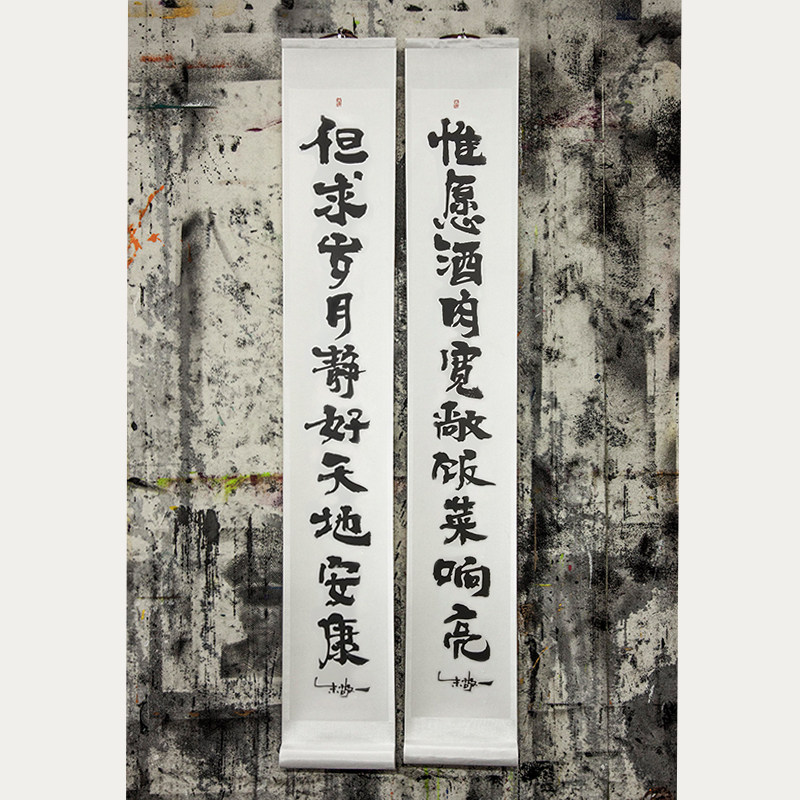 惟愿酒肉宽敞饭菜响亮
但求岁月静好天地安康